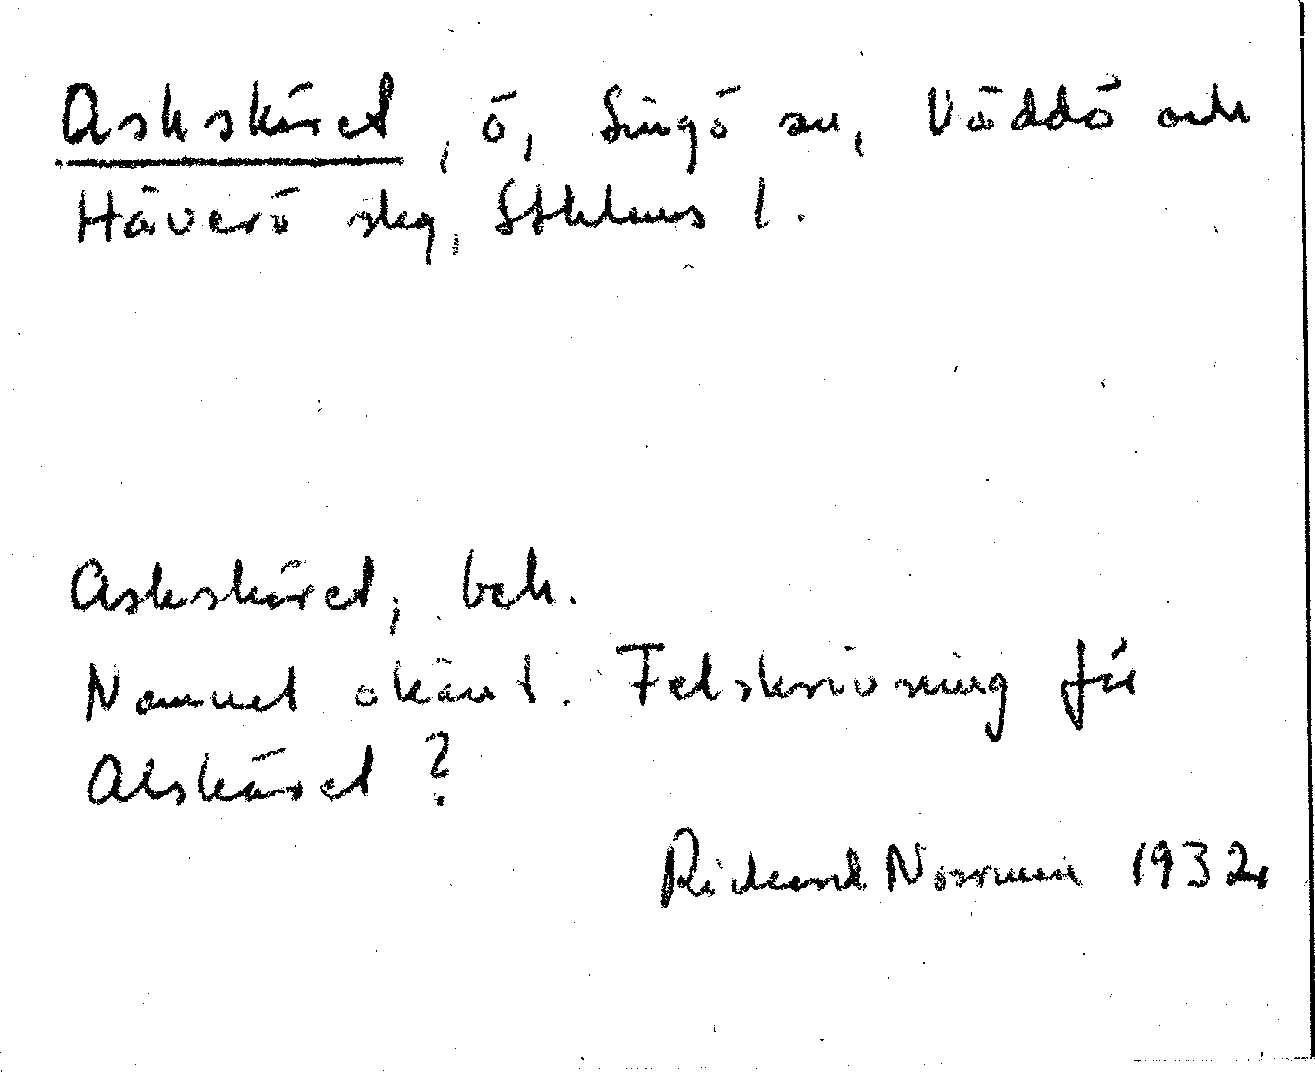 Askskäret, ö, Singö sn, Väddö och
Häverö slg, Sthlms l.
Askskäret, bek.
Namnet okänt. Felskrivning för
Alskäret?
Rickard Norrman 1932